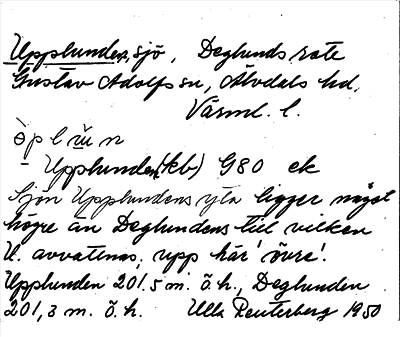 Upplunden, sjö, Deglunds rote
Gustav Adolfs sn, Älvdals hd,
Värml. l.
ö̀ p l ŭ n
Upplunden (kb) G80 ek
Sjön Upplundens yta ligger något
högre än Deglundens till vilken
U. avvattnas, upp här 'övre'.
Upplunden 201.5 m. ö. h., Deglunden
201,3 m. ö. h. Ulla Reuterberg 1950